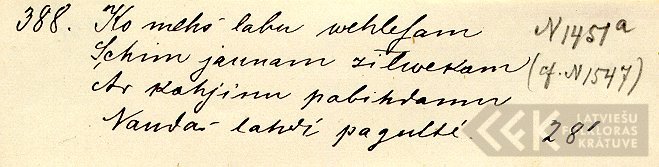 388. Ko mehs labu wehlesam N1451a
Schim jaunam zilwekam (cf. N1547)
Ar kahjinu pabihdamu
Naudas lahdi pagultê. 28'
LATVIEŠU
FOLKLORAS
KRĀTUVE